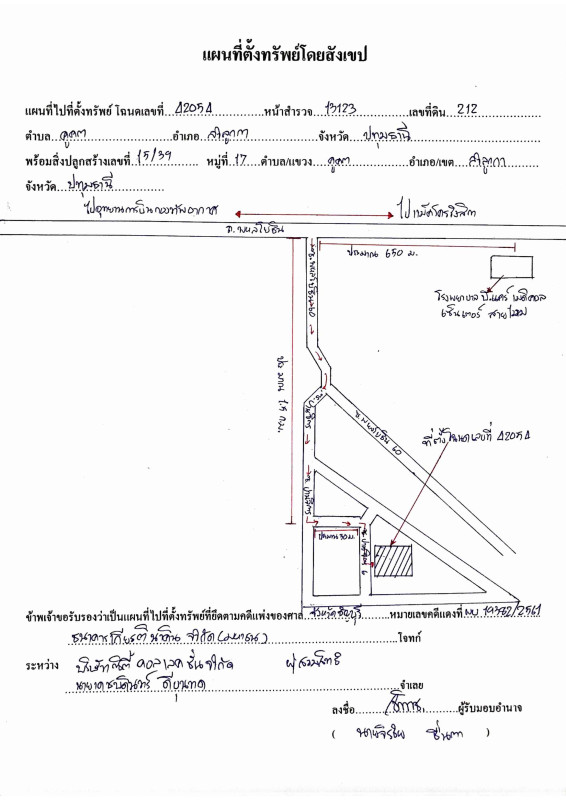 แผนที่ตั้งทรัพย์โดยสังเขป
แผนที่ไปที่ตั้งทรัพย์ โฉนดเลขที่ 42054 หน้าสำรวจ 13123 เลขที่ดิน 212
ตำบล คูคต อำเภอ ลำลูกกา จังหวัด ปทุมธานี
พร้อมสิ่งปลูกสร้างเลขที่ 15/39 หมู่ที่ 17 ตำบล/แขวง คูคต อำเภอ/เขต ลำลูกกา
จังหวัด ปทุมธานี
ไปอุทยานการบินกองทัพอากาศ ไปเมเจอร์รังสิต
ถ. พหลโยธิน
ประมาณ 650 ม.
โรงพยาบาล บี.แคร์ เมดิคอล
เซ็นเตอร์ สายไหม
ประมาณ 1.5 กม.
ซ.พหลโยธิน 60
ที่ตั้งโฉนดเลขที่ 42054
ประมาณ 30 ม.
ข้าพเจ้าขอรับรองว่าเป็นแผนที่ไปที่ตั้งทรัพย์ที่ยึดตามคดีแพ่งของศาล จังหวัดธัญบุรี หมายเลขคดีแดงที่ ผบ 19782/2561
ธนาคารเกียรตินาคิน จำกัด (มหาชน) โจทก์
ระหว่าง บริษัทซิตี้ คอลเลคชั่น จำกัด ผู้สวมสิทธิ
จำเลย
ลงชื่อ ผู้รับมอบอำนาจ